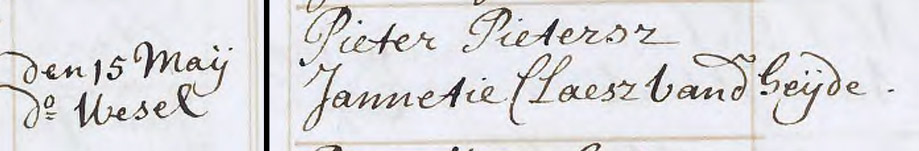 den 15 Maÿ
do Wesel
Pieter Pietersz
Jannetie Claesz vand Heÿde.